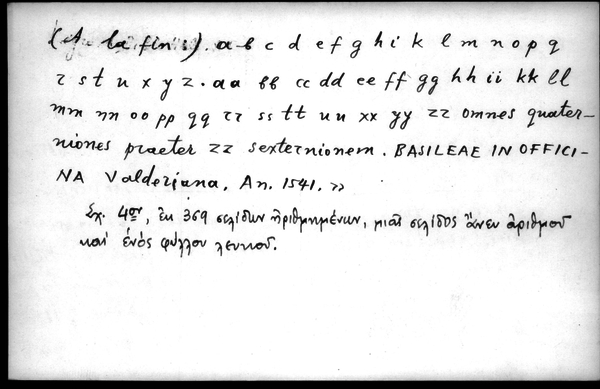 (A la fin:). a b c d e f g h i k l m n o p q
r s t u x y z. aa bb cc dd ee ff gg hh ii kk ll
mm nn oo pp qq rr ss tt uu xx yy zz omnes quater-
niones praeter zz sexternionem. BASILEAE IN OFFICI-
NA Valderiana, An. 1541. »
Σχ. 4ον, ἐκ 369 σελίδων ἠριθμημένων, μιᾶς σελίδος ἄνευ ἀριθμοῦ
καὶ ἑνὸς φύλλου λευκοῦ.